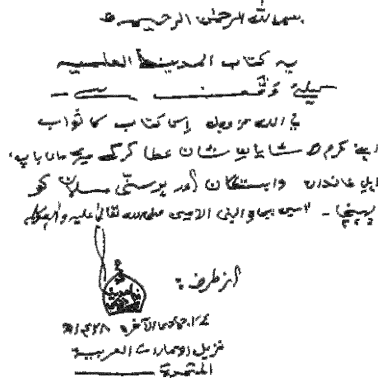 بسم الله الرحمٰن الرحیم
یہ کتاب المدینۃ العلمیہ
کیلئے وقف ہے
یا اللہ عزوجل اِس کتاب کا ثواب
اپنے کرم کے شایانِ شان عطا کرکے میرے ماں باپ،
اہلِ خاندان وابستگان اور ہر سنّی مسلمان کو
پہنچا۔ اٰمین بجاہ النبی الامین صلی اللہ تعالیٰ علیہ واٰلہ وسلم
از طرف:
جمادی الآخرہ ۱۴۲۸ھ
نزیل الامارات العربیۃ
المتحدۃ